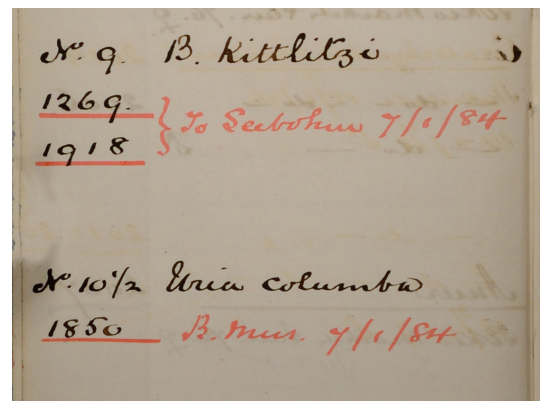 No. 9. B. Kittlitzi
1269.
To Seebohm 7/1/84
1918
No. 10 1/2 Uria columba
1850 B. Mus. 7/1/84